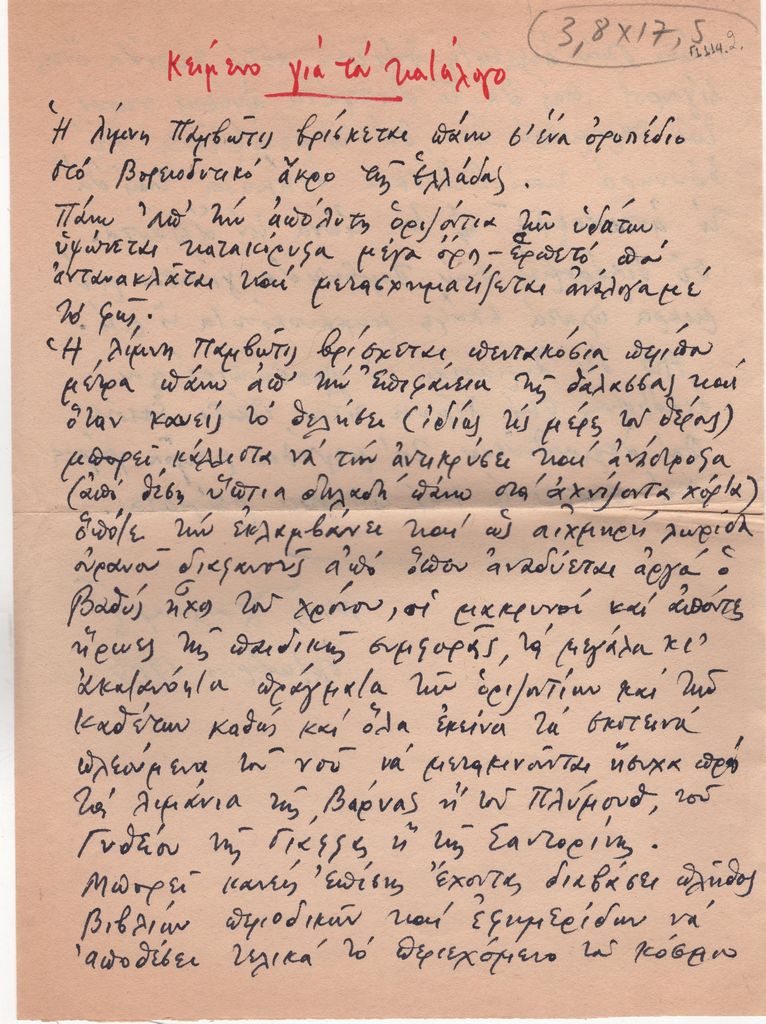 3,8 x 17,5
Κείμενο γιά τόν κατάλογο
Ἡ λίμνη Παμβῶτις βρίσκεται πάνω σ' ἕνα ὀροπέδιο
στό βορειοδυτικό ἄκρο τῆς Ἑλλάδας.
Πάνω ἀπ' τήν ἀπόλυτη ὁριζόντια τῶν ὑδάτων
ὑψώνεται κατακόρυφα μέγα ὄρη - ἑρπετό πού
ἀντανακλᾶται καί μετασχηματίζεται ἀνάλογα μέ
τό φῶς.
Ἡ λίμνη Παμβῶτις βρίσκεται πεντακόσια περίπου
μέτρα πάνω ἀπ' τήν ἐπιφάνεια τῆς θάλασσας καί
ὅταν κανείς τό θελήσει (ἰδίως τίς μέρες τοῦ θέρους)
μπορεῖ κάλλιστα νά τήν ἀντικρύσει καί ἀνάστροφα
(ἀπό θέση ὕπτια δηλαδή πάνω στά ἀχνίζοντα χόρτα)
ὁπότε τήν ἐκλαμβάνει καί ὡς αἰχμηρή λωρίδα
οὐρανοῦ διαφανοῦς ἀπό ὅπου ἀναδύεται ἀργά ὁ
βαθύς ἦχος τοῦ χρόνου, οἱ μακρυνοί καί ἀπόντες
ἥρωες τῆς παιδικῆς συμφορᾶς, τά μεγάλα κι'
ἀκατανόητα πράγματα τῶν ὁριζοντίων καί τῶν
καθέτων καθώς καί ὅλα ἐκεῖνα τά σκοτεινά
πλεούμενα τοῦ νοῦ νά μετακινοῦνται ἥσυχα πρός
τά λιμάνια τῆς Βάρνας ἤ τοῦ Πλύμουθ, τοῦ
Γυθείου τῆς Γιάφφας ἤ τῆς Σαντορίνης.
Μπορεῖ κανείς ἐπίσης ἔχοντας διαβάσει πλῆθος
βιβλίων περιοδικῶν καί ἐφημερίδων νά
ἀποθέσει τελικά τό περιεχόμενο τοῦ κόσμου